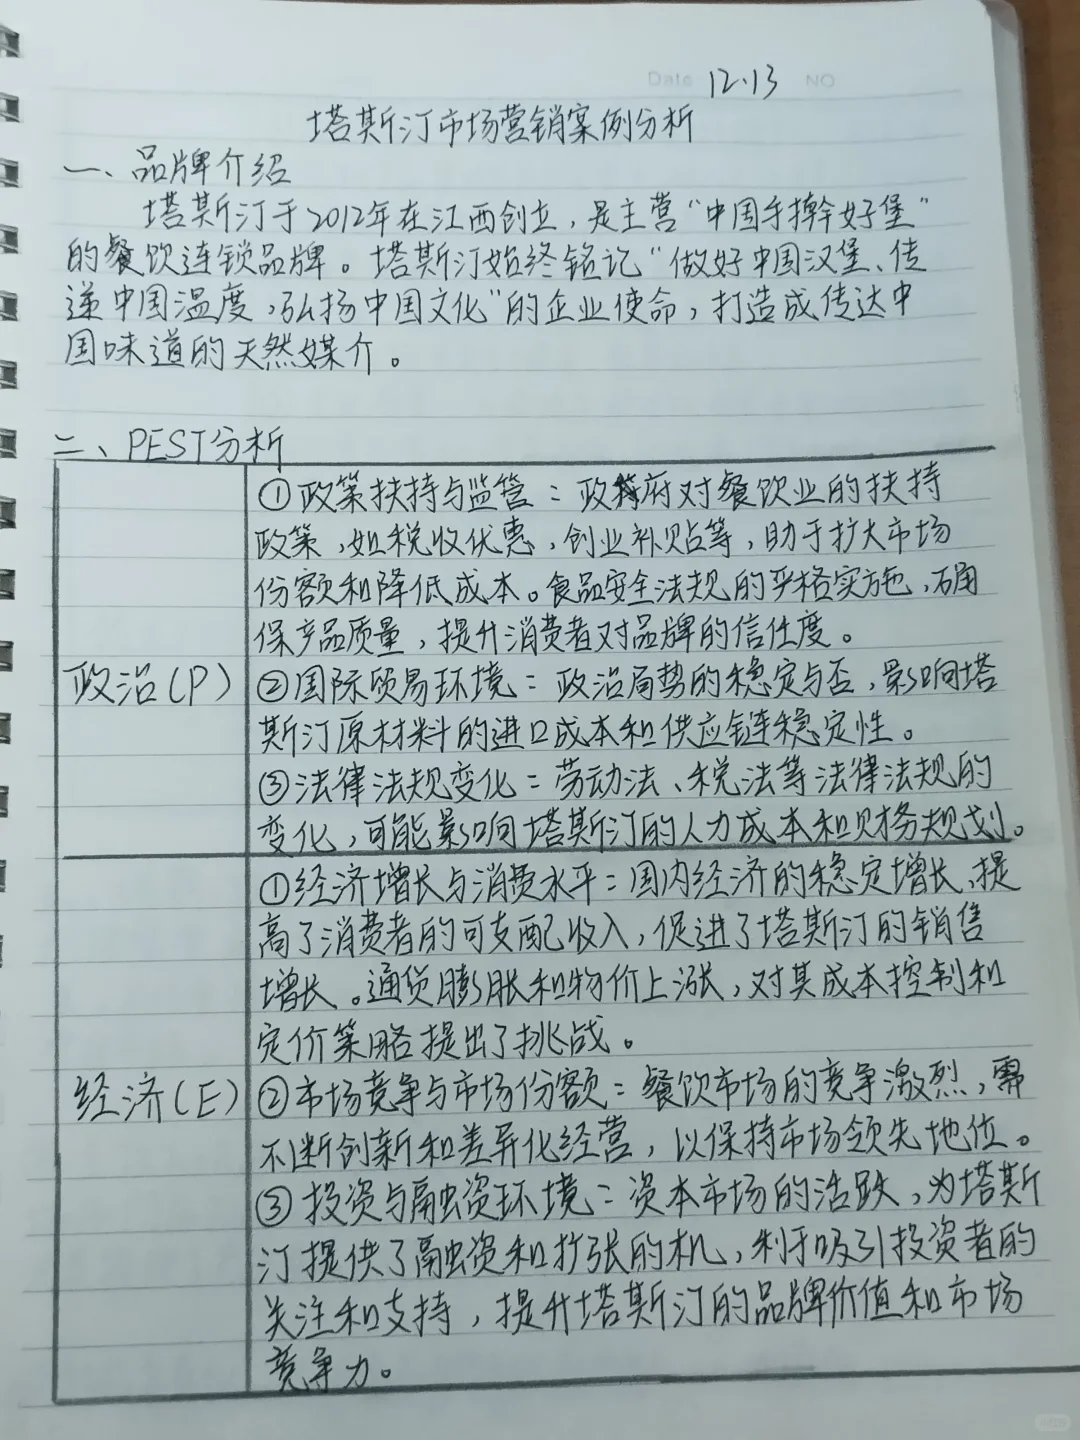 Date 12.13 NO
塔斯汀市场营销案例分析
一、品牌介绍
塔斯汀于2012年在江西创立，是主营“中国手擀好堡”
的餐饮连锁品牌。塔斯汀始终铭记“做好中国汉堡、传
递中国温度，弘扬中国文化”的企业使命，打造成传达中
国味道的天然媒介。
二、PEST分析
①政策扶持与监管：政府对餐饮业的扶持
政策，如税收优惠，创业补贴等，助于扩大市场
份额和降低成本。食品安全法规的严格实施，确
保产品质量，提升消费者对品牌的信任度。
政治(P)
②国际贸易环境：政治局势的稳定与否，影响塔
斯汀原材料的进口成本和供应链稳定性。
③法律法规变化：劳动法、税法等法律法规的
变化，可能影响塔斯汀的人力成本和财务规划。
①经济增长与消费水平：国内经济的稳定增长，提
高了消费者的可支配收入，促进了塔斯汀的销售
增长。通货膨胀和物价上涨，对其成本控制和
定价策略提出了挑战。
经济(E)
②市场竞争与市场份额：餐饮市场的竞争激烈，需
不断创新和差异化经营，以保持市场领先地位。
③投资与融资环境：资本市场的活跃，为塔斯
汀提供了融资和扩张的机，利于吸引投资者的
关注和支持，提升塔斯汀的品牌价值和市场
竞争力。